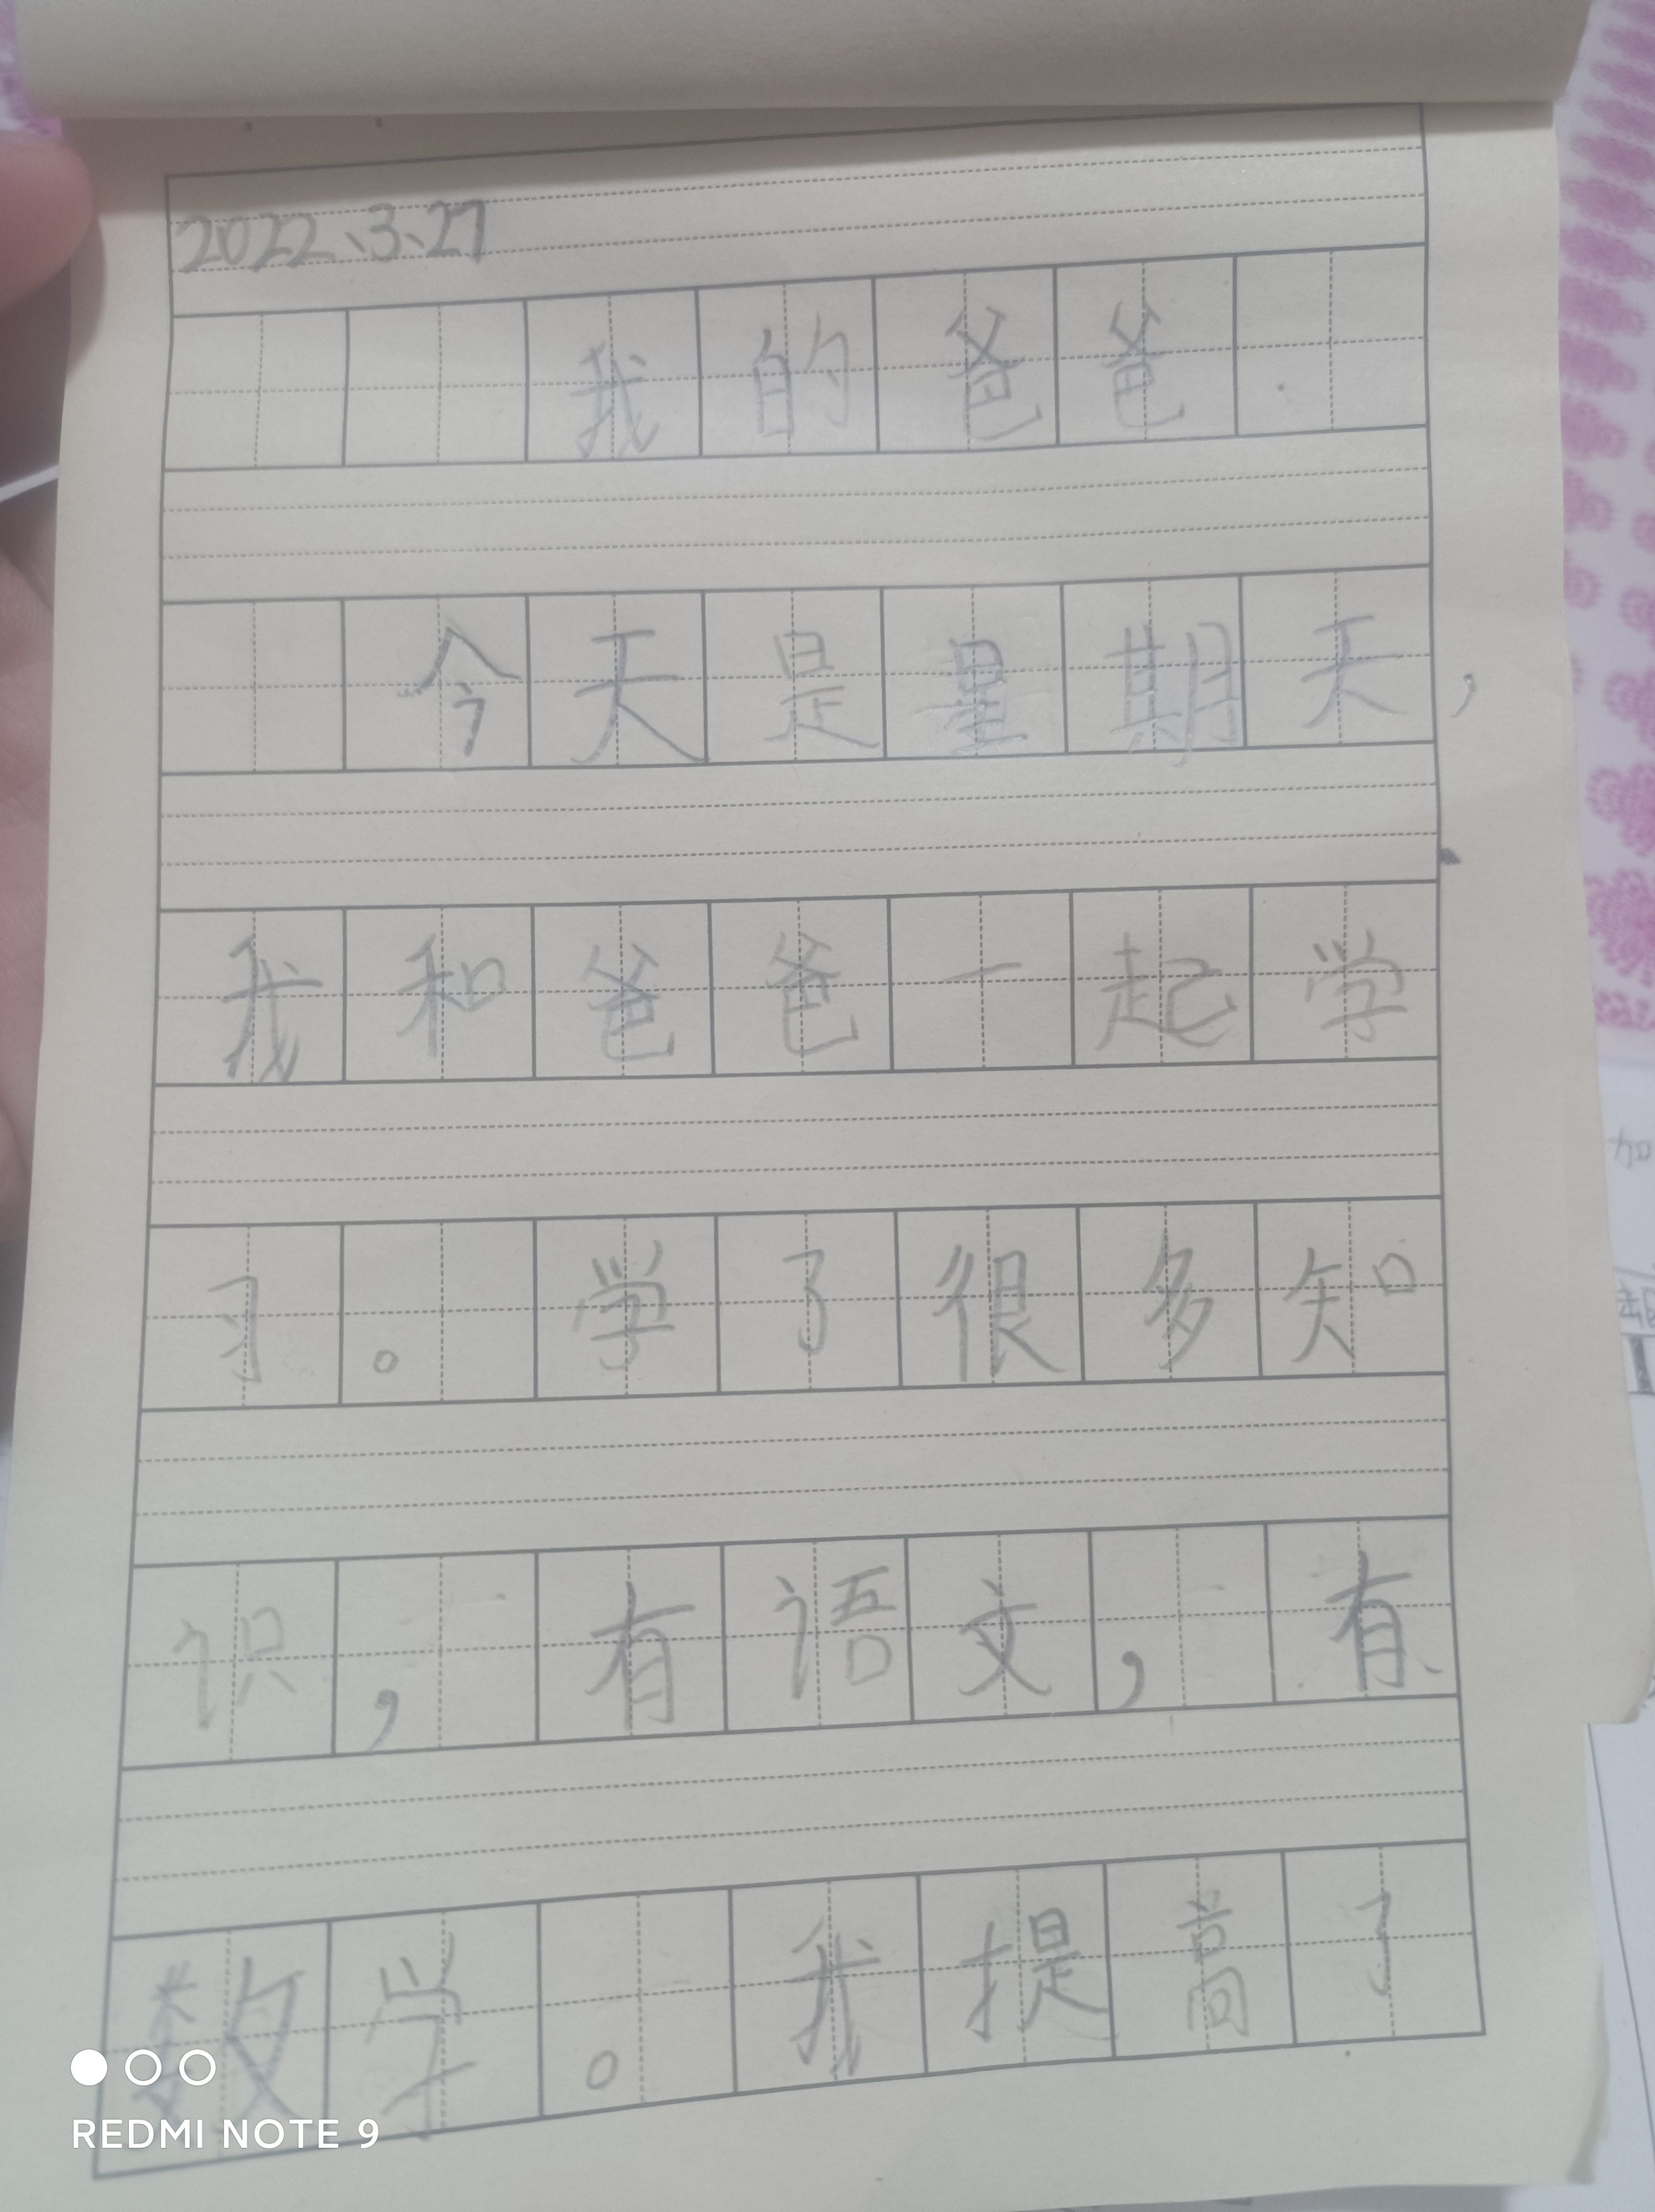 2022、3、27
我的爸爸
今天是星期天，
我和爸爸一起学
习。学了很多知
识，有语文，有
数学。我提高了
REDMI NOTE 9